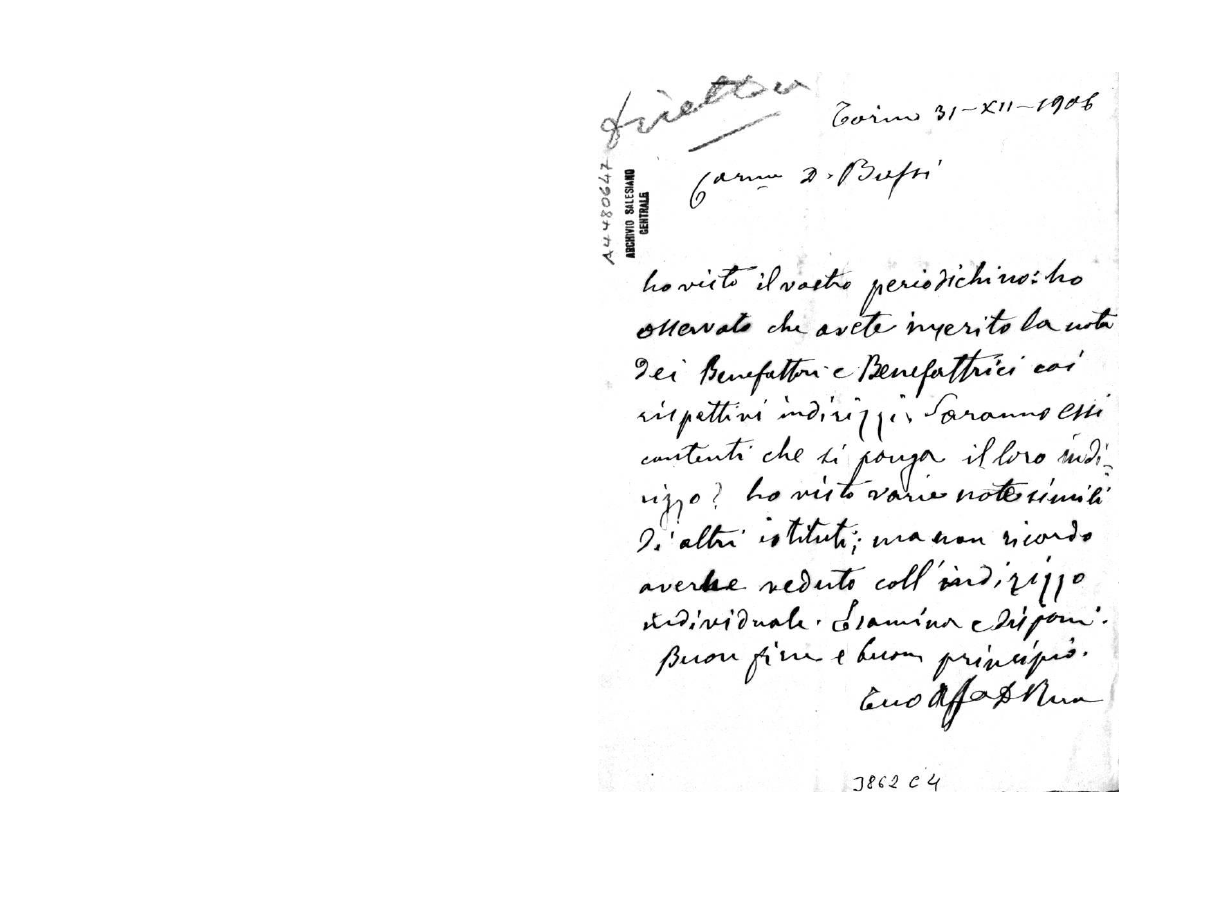 Direttore
Torino 31-XII-1906
A4480647
ARCHIVIO SALESIANO
CENTRALE
Carmo D. Bussi
ho visto il vostro periodichino: ho
osservato che avete inserito la nota
dei Benefattori e Benefattrici coi
rispettivi indirizzi. Saranno essi
contenti che si ponga il loro indi-
rizzo? ho visto varie note simili
di altri istituti; ma non ricordo
averne veduto coll'indirizzo
individuale. Esamina e disponi.
Buon fine e buon principio.
Tuo Aff. D Rua
3862 C 4